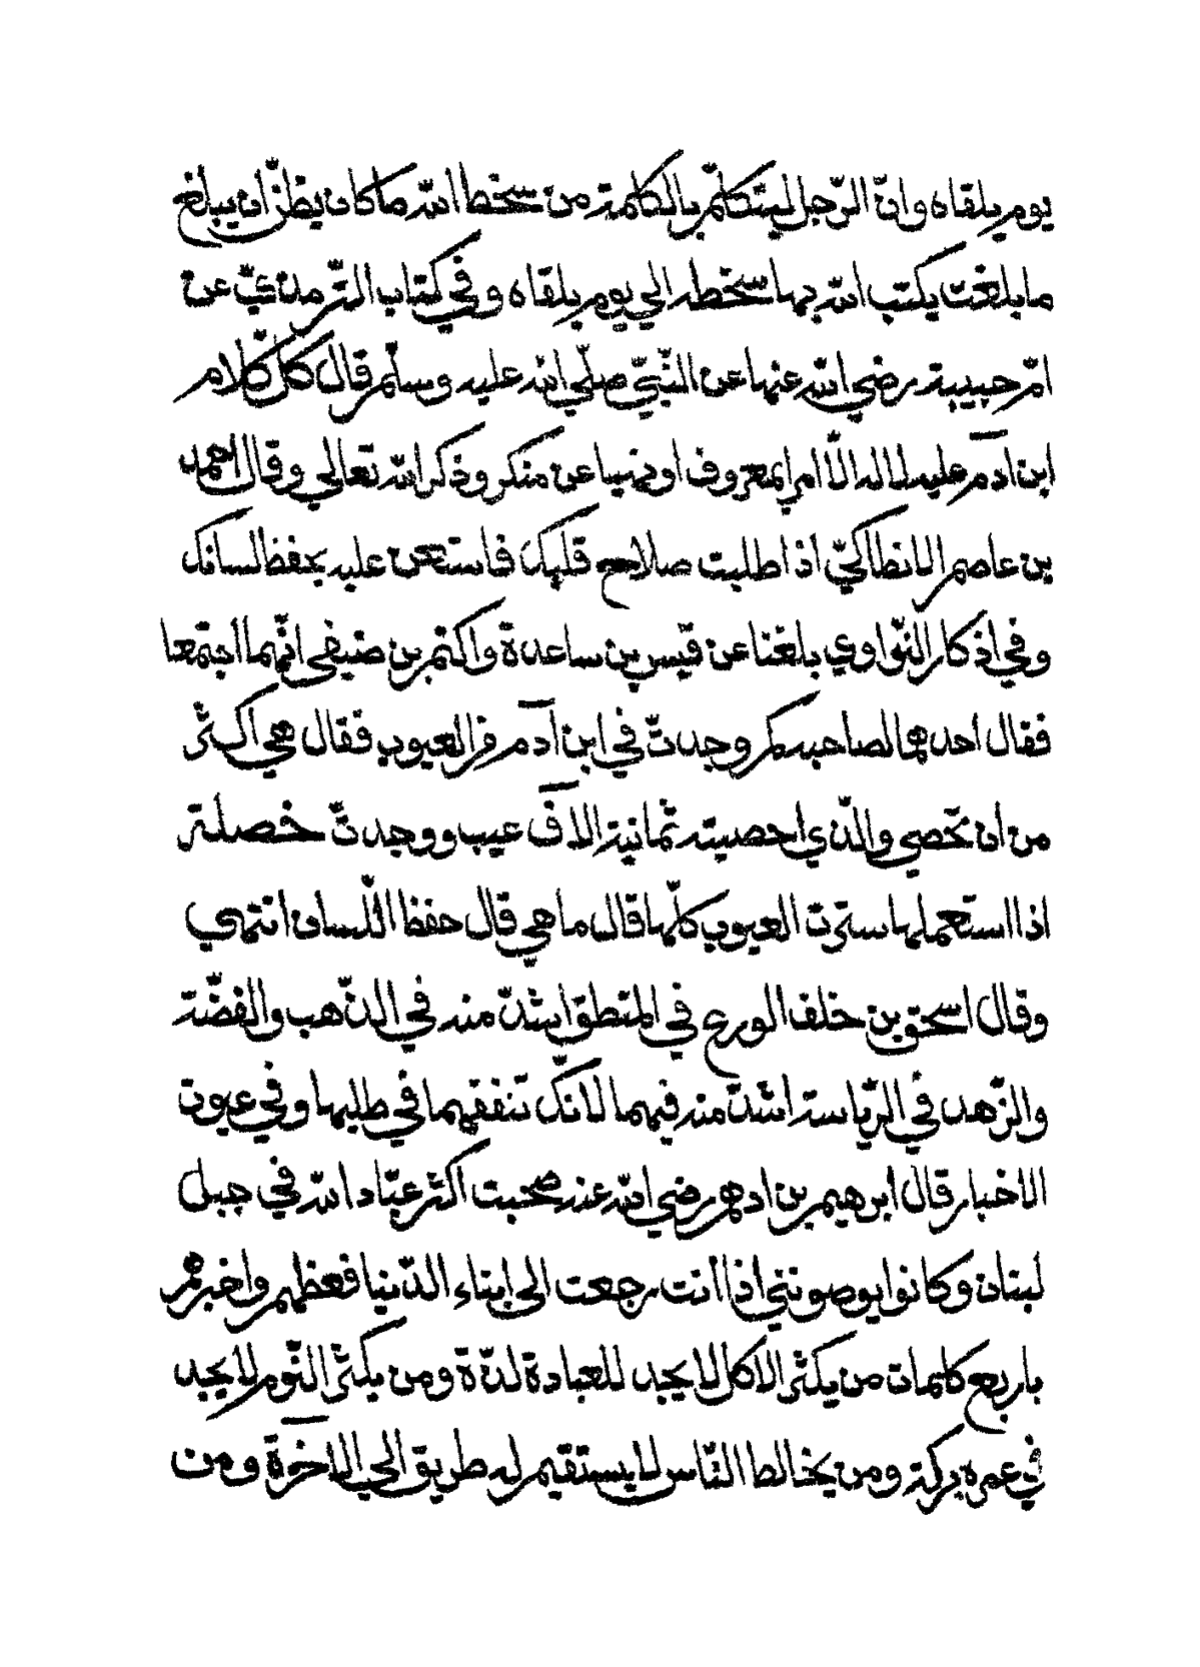 يوم يلقاه وانّ الرّجل ليتكلّم بالكلمة من سخط الله ما كان يظنّ ان يبلغ
ما بلغت يكتب الله بها سخطه الي يوم يلقاه وفي كتاب التّرمذيّ عن
امّ حبيبة رضي الله عنها عن النّبيّ صلّي الله عليه وسلّم قال كلّ كلام
ابن آدم عليه لا له الّا امرا بمعروف او نهيا عن منكر وذكر الله تعالي وقال احمد
بن عاصم الانطاكيّ اذا طلبت صلاح قلبك فاستعن عليه بحفظ لسانك
وفي اذكار النّواوي بلغنا عن قيس بن ساعدة واكتم بن صيفي انّهما اجتمعا
فقال احدهما لصاحبه كم وجدتّ في ابن آدم من العيوب فقال هي اكثر
من ان تحصي والّذي احصيته ثمانية الآف عيب ووجدتّ خصلة
اذا استعملها سترت العيوب كلّها قال ما هي قال حفظ اللّسان انتهي
وقال اسحق بن خلف الورع في المنطق اشدّ منه في الذّهب والفضّة
والزّهد في الرّياسة اشدّ منه فيهما لانّك تنفقهما في طلبها وفي عيون
الاخبار قال ابرهيم بن ادهم رضي الله عنه صحبت اكثر عبّاد الله في جبل
لبنان وكانوا يوصونني اذا انت رجعت الي ابناء الدّنيا فعظهم واخبرهم
باربع كلمات من يكثر الاكل لا يجد للعبادة لذّة ومن يكثر النّوم لا يجد
في عمره بركة ومن يخالط النّاس لا يستقيم له طريق الي الآخرة ومن